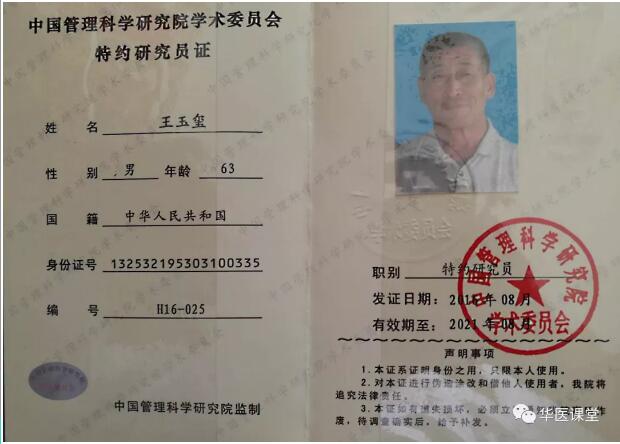 中国管理科学研究院学术委员会
特约研究员证
姓 名 王玉玺
性 别 男 年龄 63
国 籍 中华人民共和国
身份证号 132532195303100335
编 号 H16-025
中国管理科学研究院监制
职别 特约研究员
发证日期： 年08月
有效期至：2021年08月
中国管理科学研究院
学术委员会
声明事项
1.本证系证明身份之用，只限本人使用。
2.对本证进行伪造涂改和借他人使用者，我院将
追究法律责任。
3.本证如有遗失损坏，必须立
废，待调查确实后，给予补发。
华医课堂